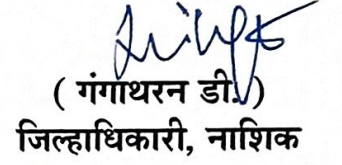 ( गंगाथरन डी. )
जिल्हाधिकारी, नाशिक